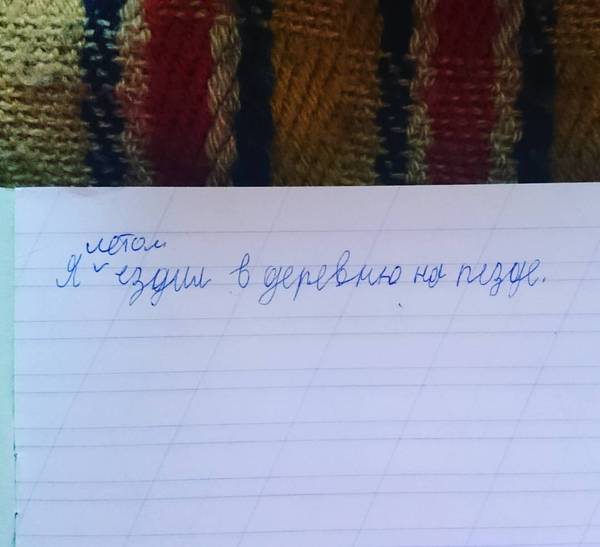 летом
Я ездил в деревню на пезде.